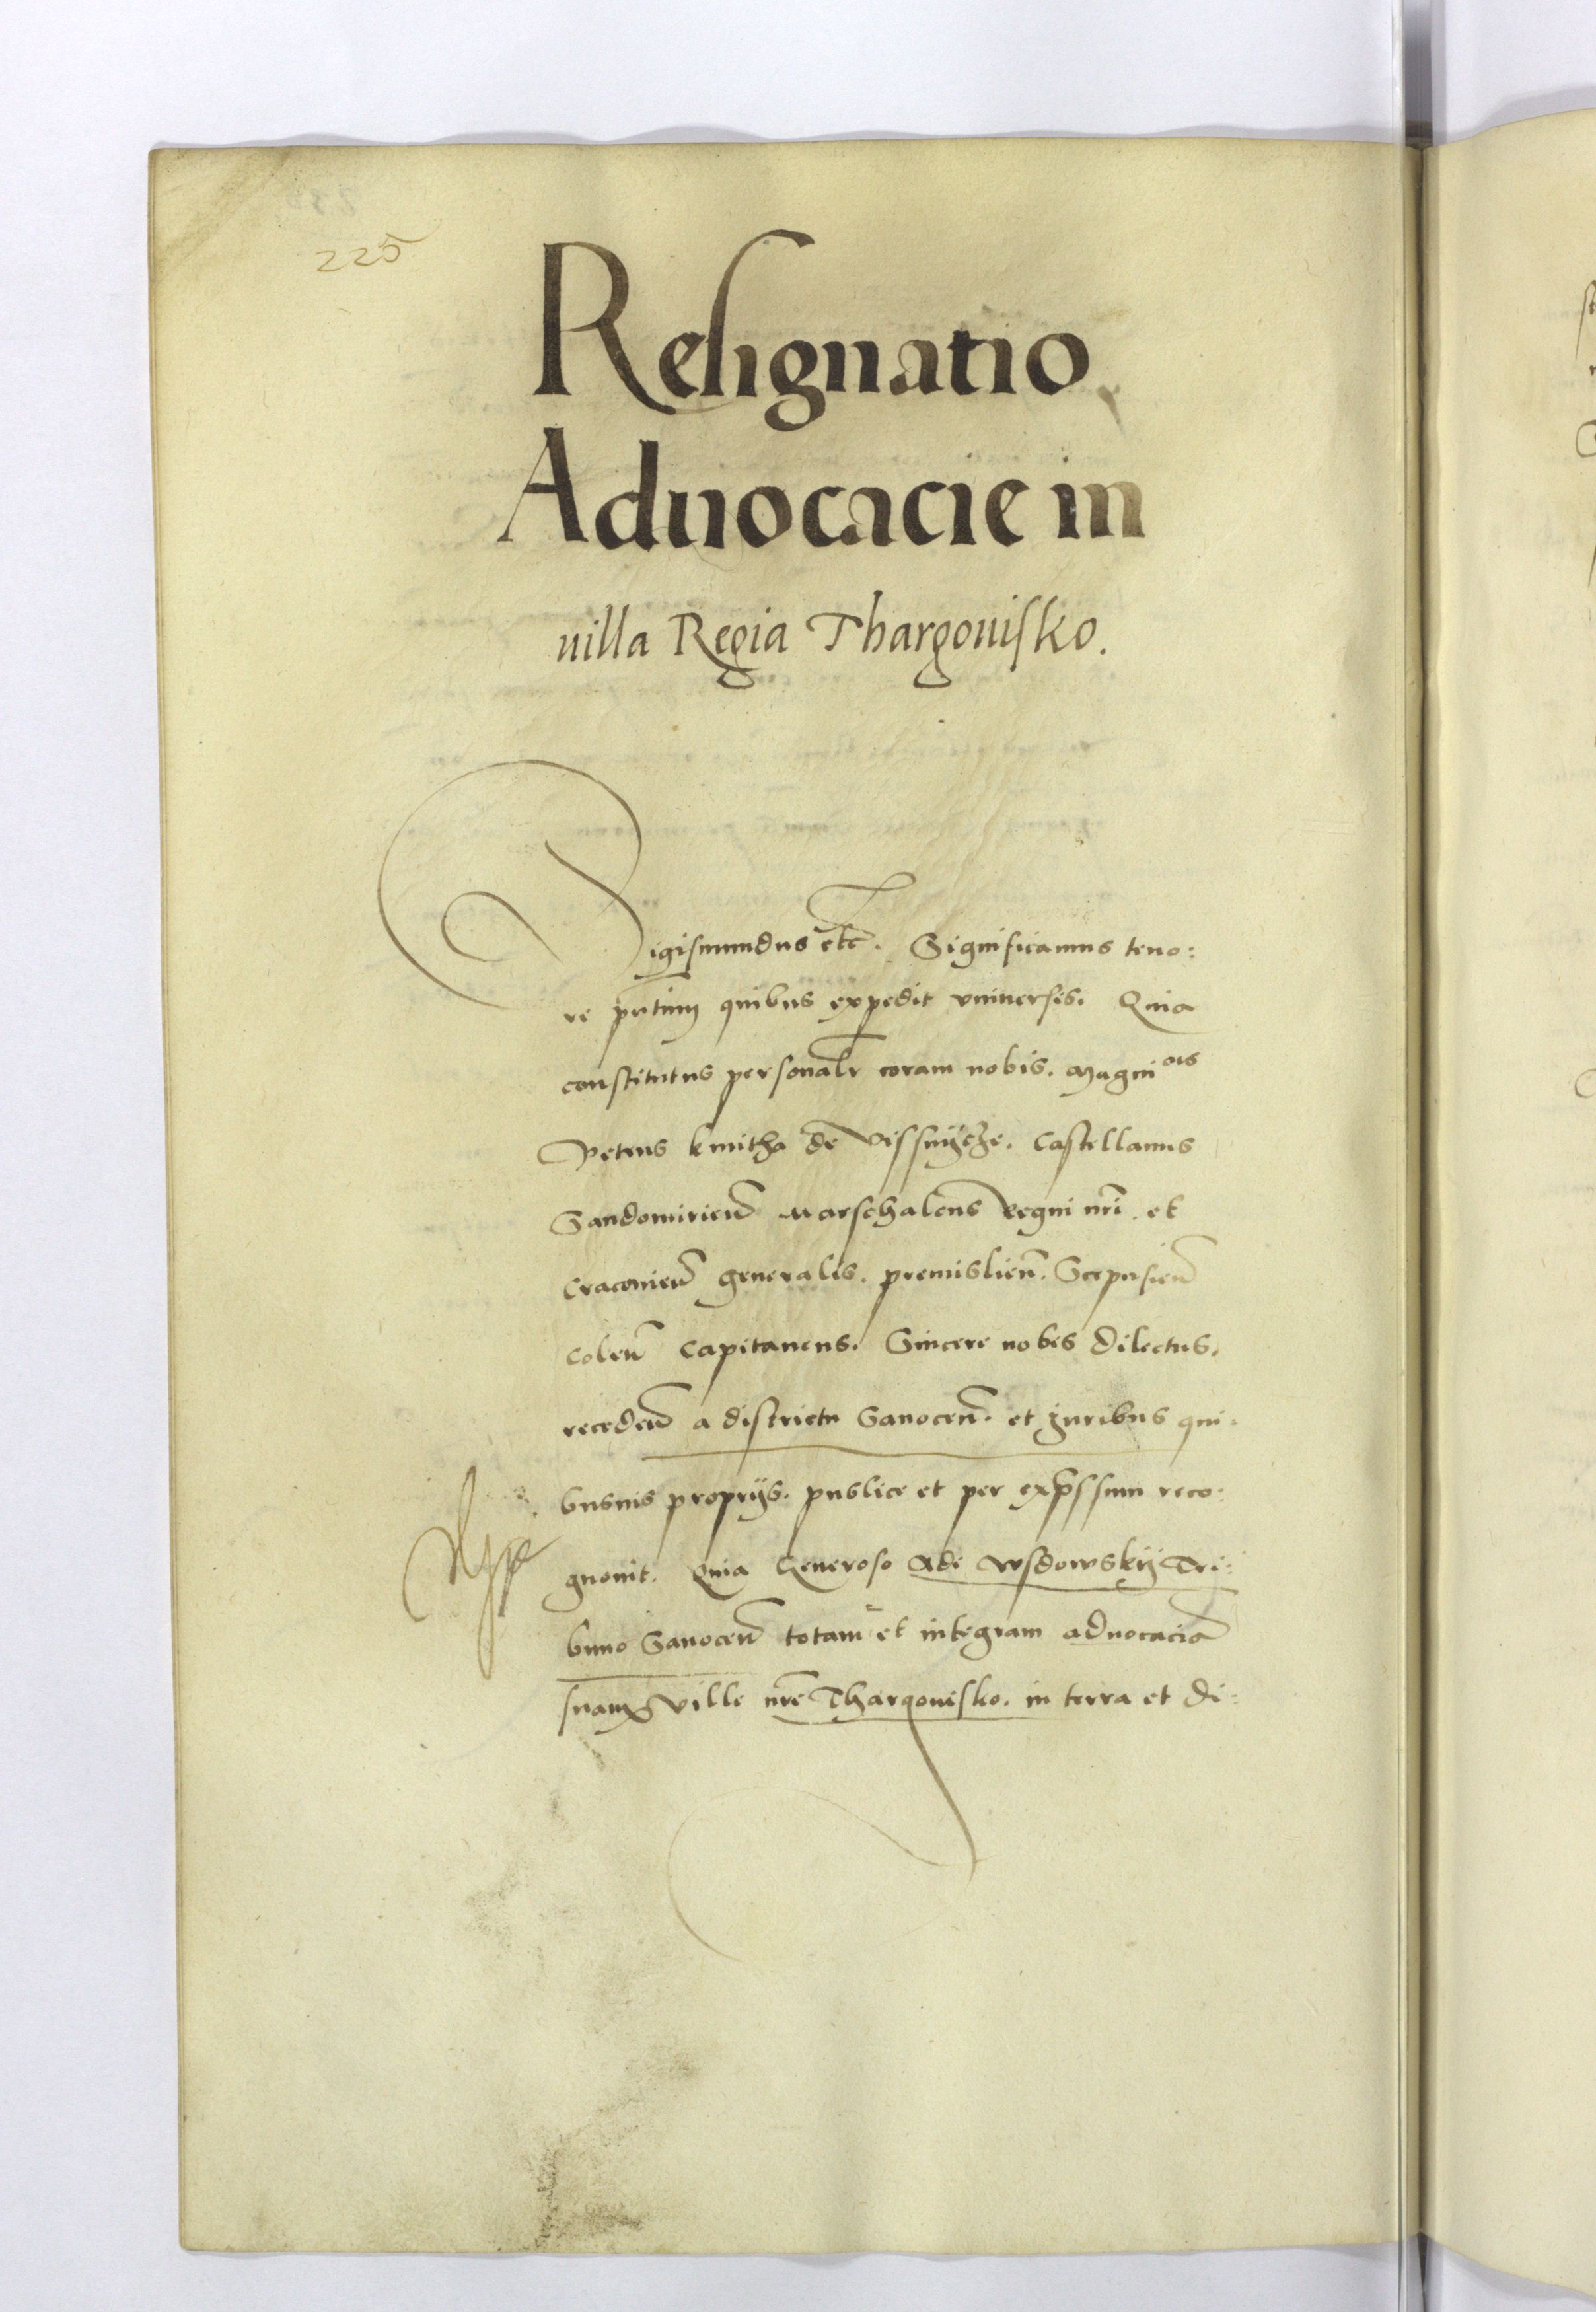 225
Resignatio
Aduocacie in
uilla Regia Thargouisko.
Sigismundus etc. Significamus teno:
re pntium quibus expedit vniuersis. Quia
constitutus personalr coram nobis. Magnicus
Petrus kmitha de Vissnycze. Castellanus
Sandomirien Marschalcus Regni nri. et
Cracouien generalis. premislien. Scepusien
Colen Capitaneus. Sincere nobis dilectus.
receden a districtu Sanocen. et Juribus qui:
busuis proprijs. puslice et per expssum reco:
gnouit. Quia Generoso Ade Wsdowskij Tri:
buno Sanocen totam et integram aduocacia
suam Ville nre Thargouisko. in terra et di: